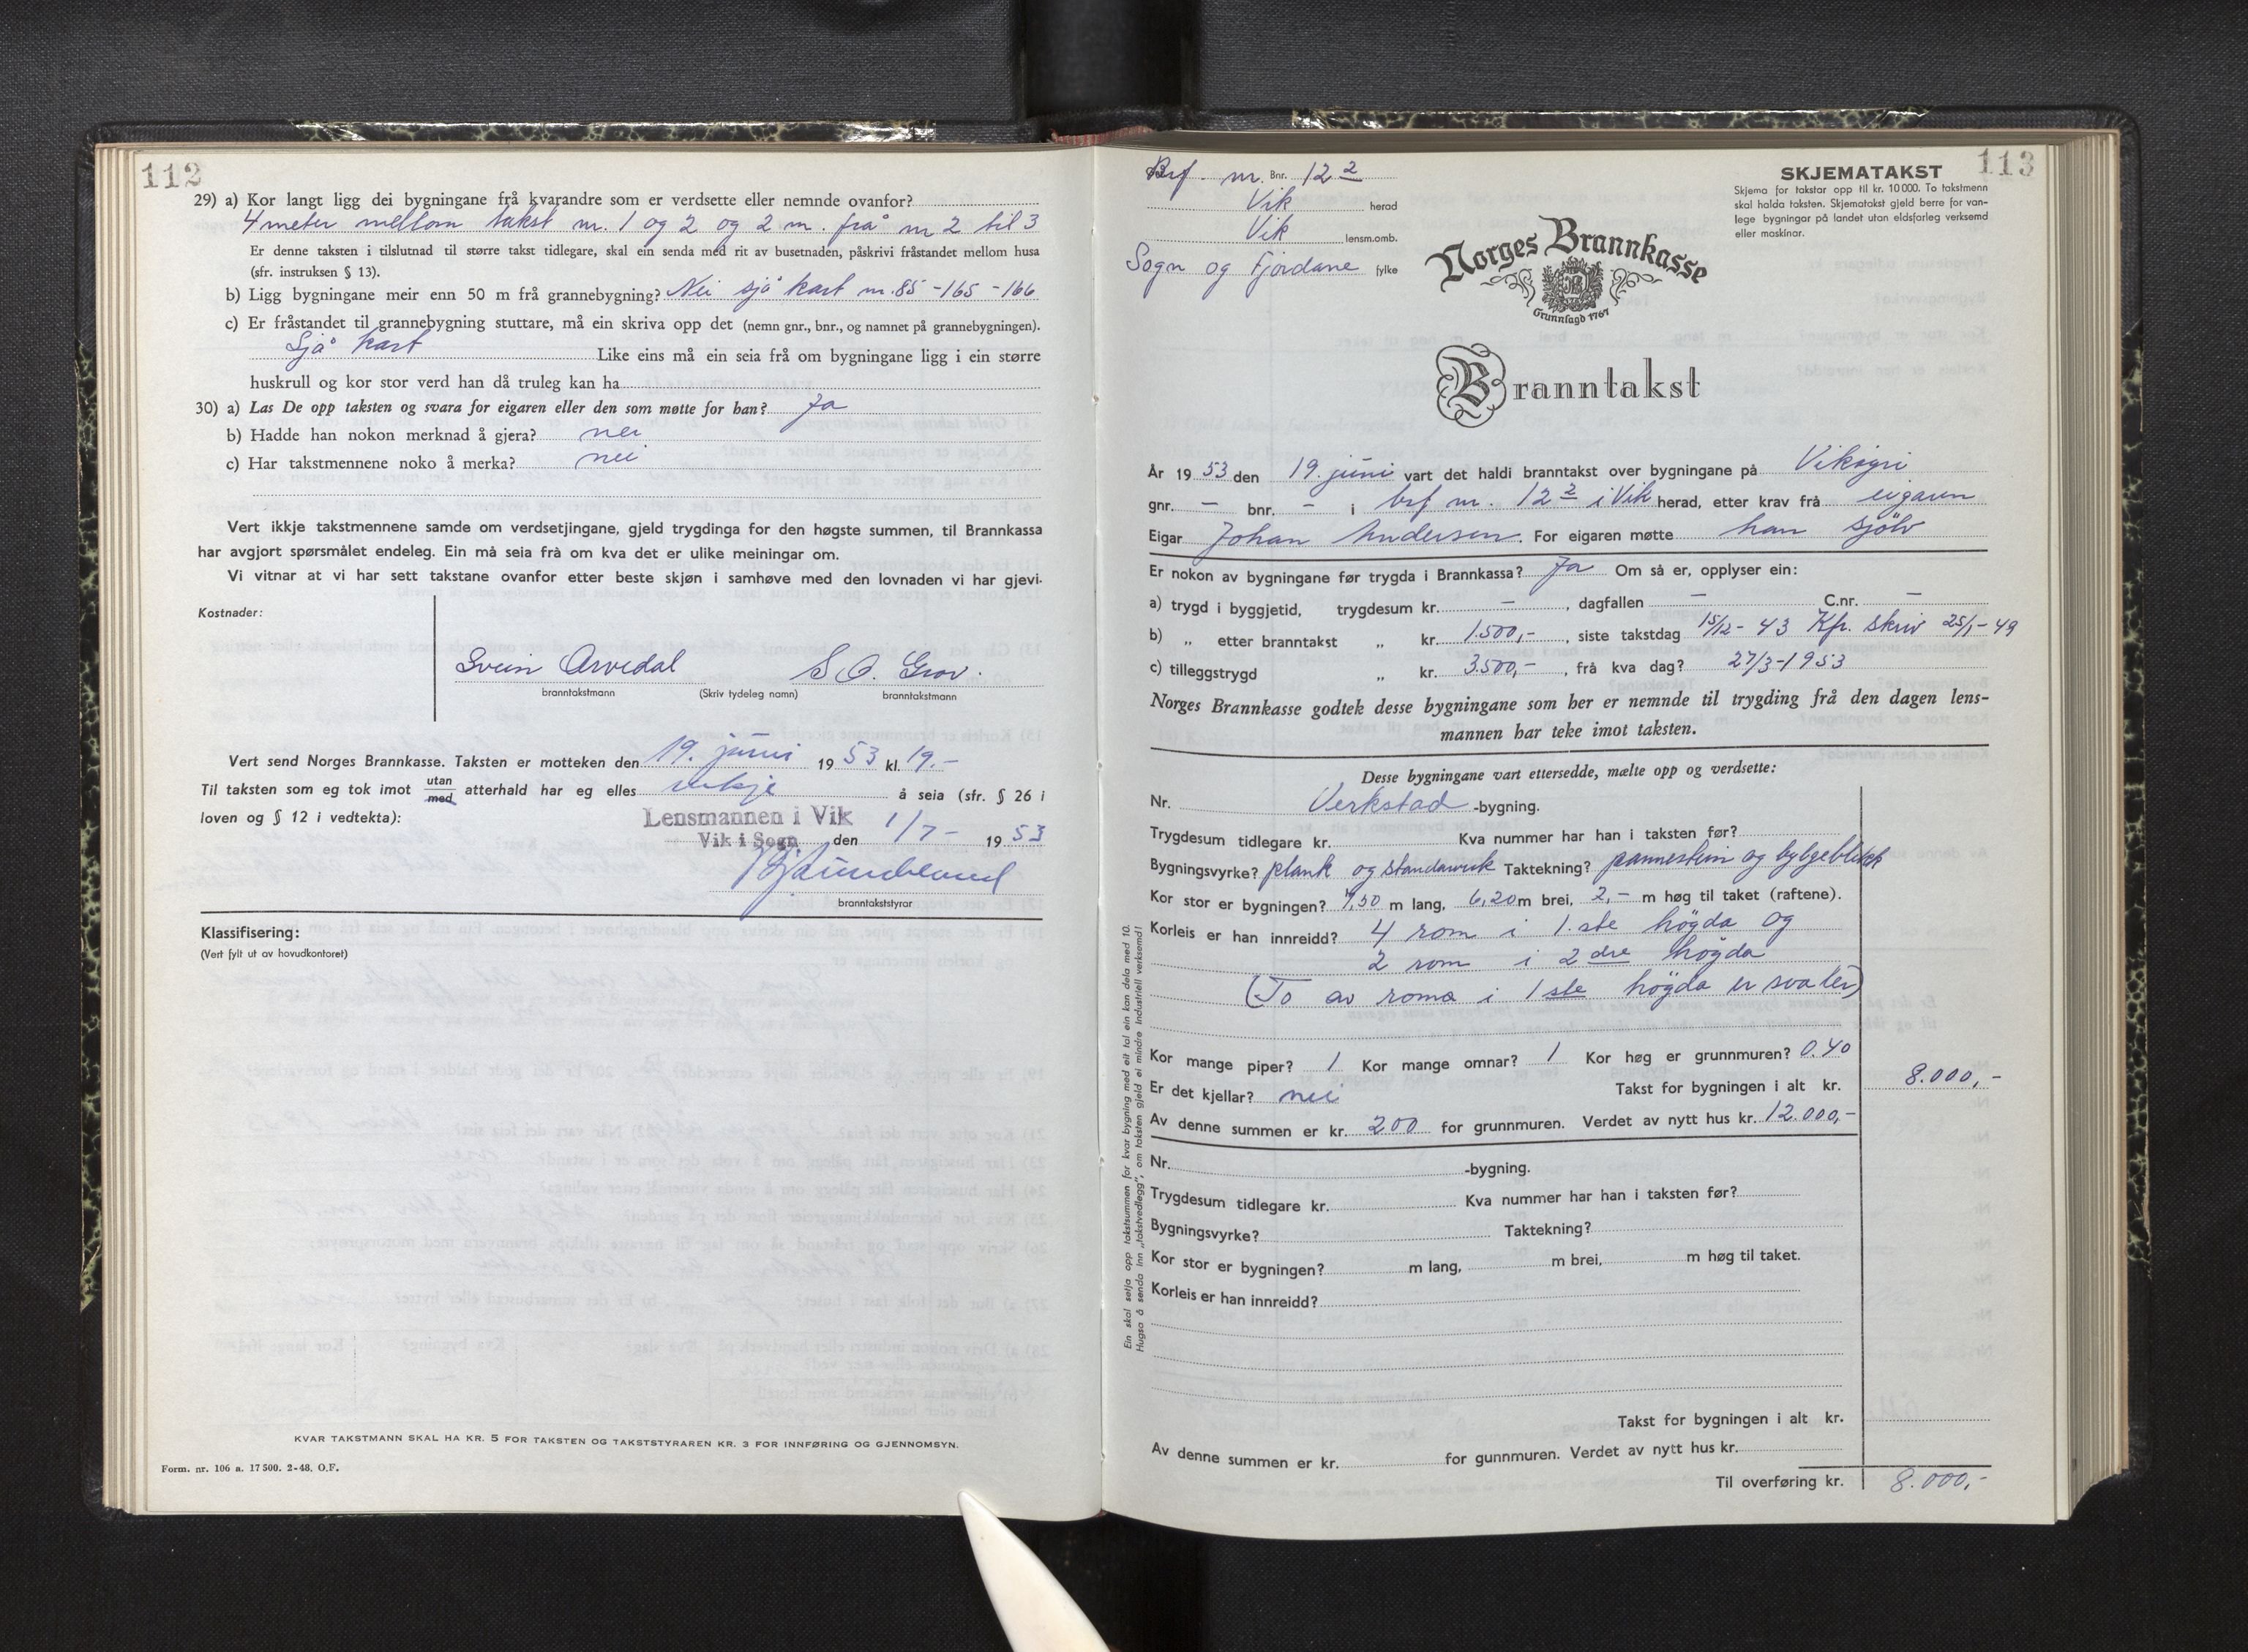 112
29) a) Kor langt ligg dei bygningane frå kvarandre som er verdsette eller nemnde ovanfor?
4 meter mellom takst nr. 1 og 2 og 2 m. frå nr 2 til 3
Er denne taksten i tilslutnad til større takst tidlegare, skal ein senda med rit av busetnaden, påskrivi fråstandet mellom husa
(sfr. instruksen § 13).
b) Ligg bygningane meir enn 50 m frå grannebygning? Nei sjå kart nr. 85 - 165 - 166
c) Er fråstandet til grannebygning stuttare, må ein skriva opp det (nemn gnr., bnr., og namnet på grannebygningen).
Sjå kart Like eins må ein seia frå om bygningane ligg i ein større
huskrull og kor stor verd han då truleg kan ha
30) a) Las De opp taksten og svara for eigaren eller den som møtte for han? Ja
b) Hadde han nokon merknad å gjera? nei
c) Har takstmennene noko å merka? nei
Vert ikkje takstmennene samde om verdsetjingane, gjeld trygdinga for den høgste summen, til Brannkassa
har avgjort spørsmålet endeleg. Ein må seia frå om kva det er ulike meiningar om.
Vi vitnar at vi har sett takstane ovanfor etter beste skjøn i samhøve med den lovnaden vi har gjevi.
Kostnader:
Svein Arvedal S O. Grov.
branntakstmann (Skriv tydeleg namn) branntakstmann
Vert send Norges Brannkasse. Taksten er motteken den 19. juni 1953 kl. 19.-
Til taksten som eg tok imot utan/med atterhald har eg elles inkje å seia (sfr. § 26 i
loven og § 12 i vedtekta):
Lensmannen i Vik
Vik i Sogn den 1/7 - 1953
branntakststyrar
Klassifisering:
(Vert fylt ut av hovudkontoret)
KVAR TAKSTMANN SKAL HA KR. 5 FOR TAKSTEN OG TAKSTSTYRAREN KR. 3 FOR INNFØRING OG GJENNOMSYN.
Form. nr. 106 a. 17 500. 2-48. O.F.
113
Brf. nr. Bnr. 12 2
Vik herad
Vik lensm.omb.
Sogn og Fjordane fylke
SKJEMATAKST
Skjema for takstar opp til kr. 10 000. To takstmenn
skal halda taksten. Skjematakst gjeld berre for van-
lege bygningar på landet utan eldsfarleg verksemd
eller maskinar.
Norges Brannkasse
Grunnlagd 1767
Branntakst
År 1953 den 19. juni vart det haldi branntakst over bygningane på Vikøyri
gnr. - bnr. - i brf nr. 12 2 i Vik herad, etter krav frå eigaren
Eigar Johan Andersen. For eigaren møtte han sjölv
Er nokon av bygningane før trygda i Brannkassa? Ja Om så er, opplyser ein:
a) trygd i byggjetid, trygdesum kr. - , dagfallen - C.nr. -
b) „ etter branntakst „ kr. 1.500,- , siste takstdag 15/12 - 43 Kfr. skriv 25/1 - 49
c) tilleggstrygd „ kr. 3.500,- , frå kva dag? 27/3-1953
Norges Brannkasse godtek desse bygningane som her er nemnde til trygding frå den dagen lens-
mannen har teke imot taksten.
Desse bygningane vart ettersedde, mælte opp og verdsette:
Nr. Verkstad -bygning.
Trygdesum tidlegare kr. Kva nummer har han i taksten før?
Bygningsvyrke? plank og standarverk Taktekning? pannestein og bylgeblekk
Kor stor er bygningen? 9,50 m lang, 6,20 m brei, 2,- m høg til taket (raftene).
Korleis er han innreidd? 4 rom i 1.ste högda og
2 rom i 2dre högda
(To av roma i 1ste högda er svaler)
Kor mange piper? 1 Kor mange omnar? 1 Kor høg er grunnmuren? 0.40
Er det kjellar? nei Takst for bygningen i alt kr. 8.000,-
Av denne summen er kr. 200 for grunnmuren. Verdet av nytt hus kr. 12.000,-
Nr. -bygning.
Trygdesum tidlegare kr. Kva nummer har han i taksten før?
Bygningsvyrke? Taktekning?
Kor stor er bygningen? m lang, m brei, m høg til taket.
Korleis er han innreidd?
Takst for bygningen i alt kr.
Av denne summen er kr. for gunnmuren. Verdet av nytt hus kr.
Til overføring kr. 8.000,-
Ein skal setja opp takstsummen for kvar bygning med eit tal ein kan dela med 10.
Hugsa å senda inn „takstvedlegg", om taksten gjeld ei mindre industriell verksemd!